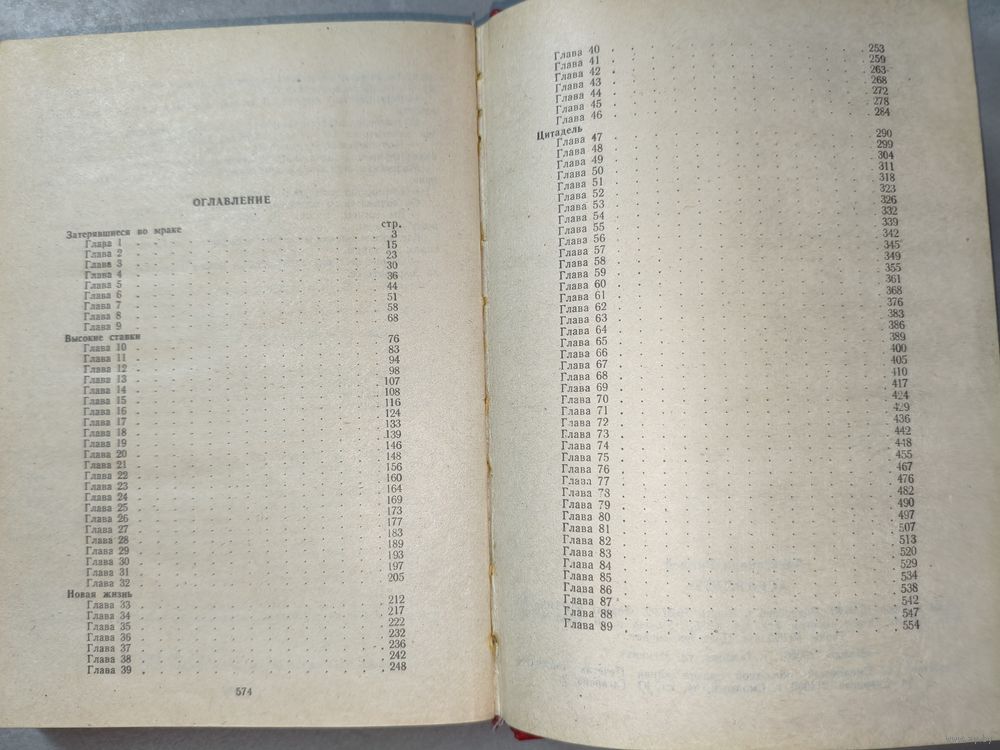 ОГЛАВЛЕНИЕ
стр.
Затерявшиеся во мраке
Глава 1 3
Глава 2 15
Глава 3 23
Глава 4 30
Глава 5 36
Глава 6 44
Глава 7 51
Глава 8 58
Глава 9 68
Высокие ставки
Глава 10 76
Глава 11 83
Глава 12 94
Глава 13 98
Глава 14 107
Глава 15 108
Глава 16 116
Глава 17 124
Глава 18 133
Глава 19 139
Глава 20 146
Глава 21 148
Глава 22 156
Глава 23 160
Глава 24 164
Глава 25 169
Глава 26 173
Глава 27 177
Глава 28 183
Глава 29 189
Глава 30 193
Глава 31 197
Глава 32 205
Новая жизнь
Глава 33 212
Глава 34 217
Глава 35 222
Глава 36 232
Глава 37 236
Глава 38 242
Глава 39 248
574
Глава 40 253
Глава 41 259
Глава 42 263
Глава 43 268
Глава 44 272
Глава 45 278
Глава 46 284
Цитадель
Глава 47 290
Глава 48 299
Глава 49 304
Глава 50 311
Глава 51 318
Глава 52 323
Глава 53 326
Глава 54 332
Глава 55 339
Глава 56 342
Глава 57 345
Глава 58 349
Глава 59 355
Глава 60 361
Глава 61 368
Глава 62 376
Глава 63 383
Глава 64 386
Глава 65 389
Глава 66 400
Глава 67 405
Глава 68 410
Глава 69 417
Глава 70 424
Глава 71 429
Глава 72 436
Глава 73 442
Глава 74 448
Глава 75 455
Глава 76 467
Глава 77 476
Глава 78 482
Глава 79 490
Глава 80 497
Глава 81 507
Глава 82 513
Глава 83 520
Глава 84 529
Глава 85 534
Глава 86 538
Глава 87 542
Глава 88 547
Глава 89 554